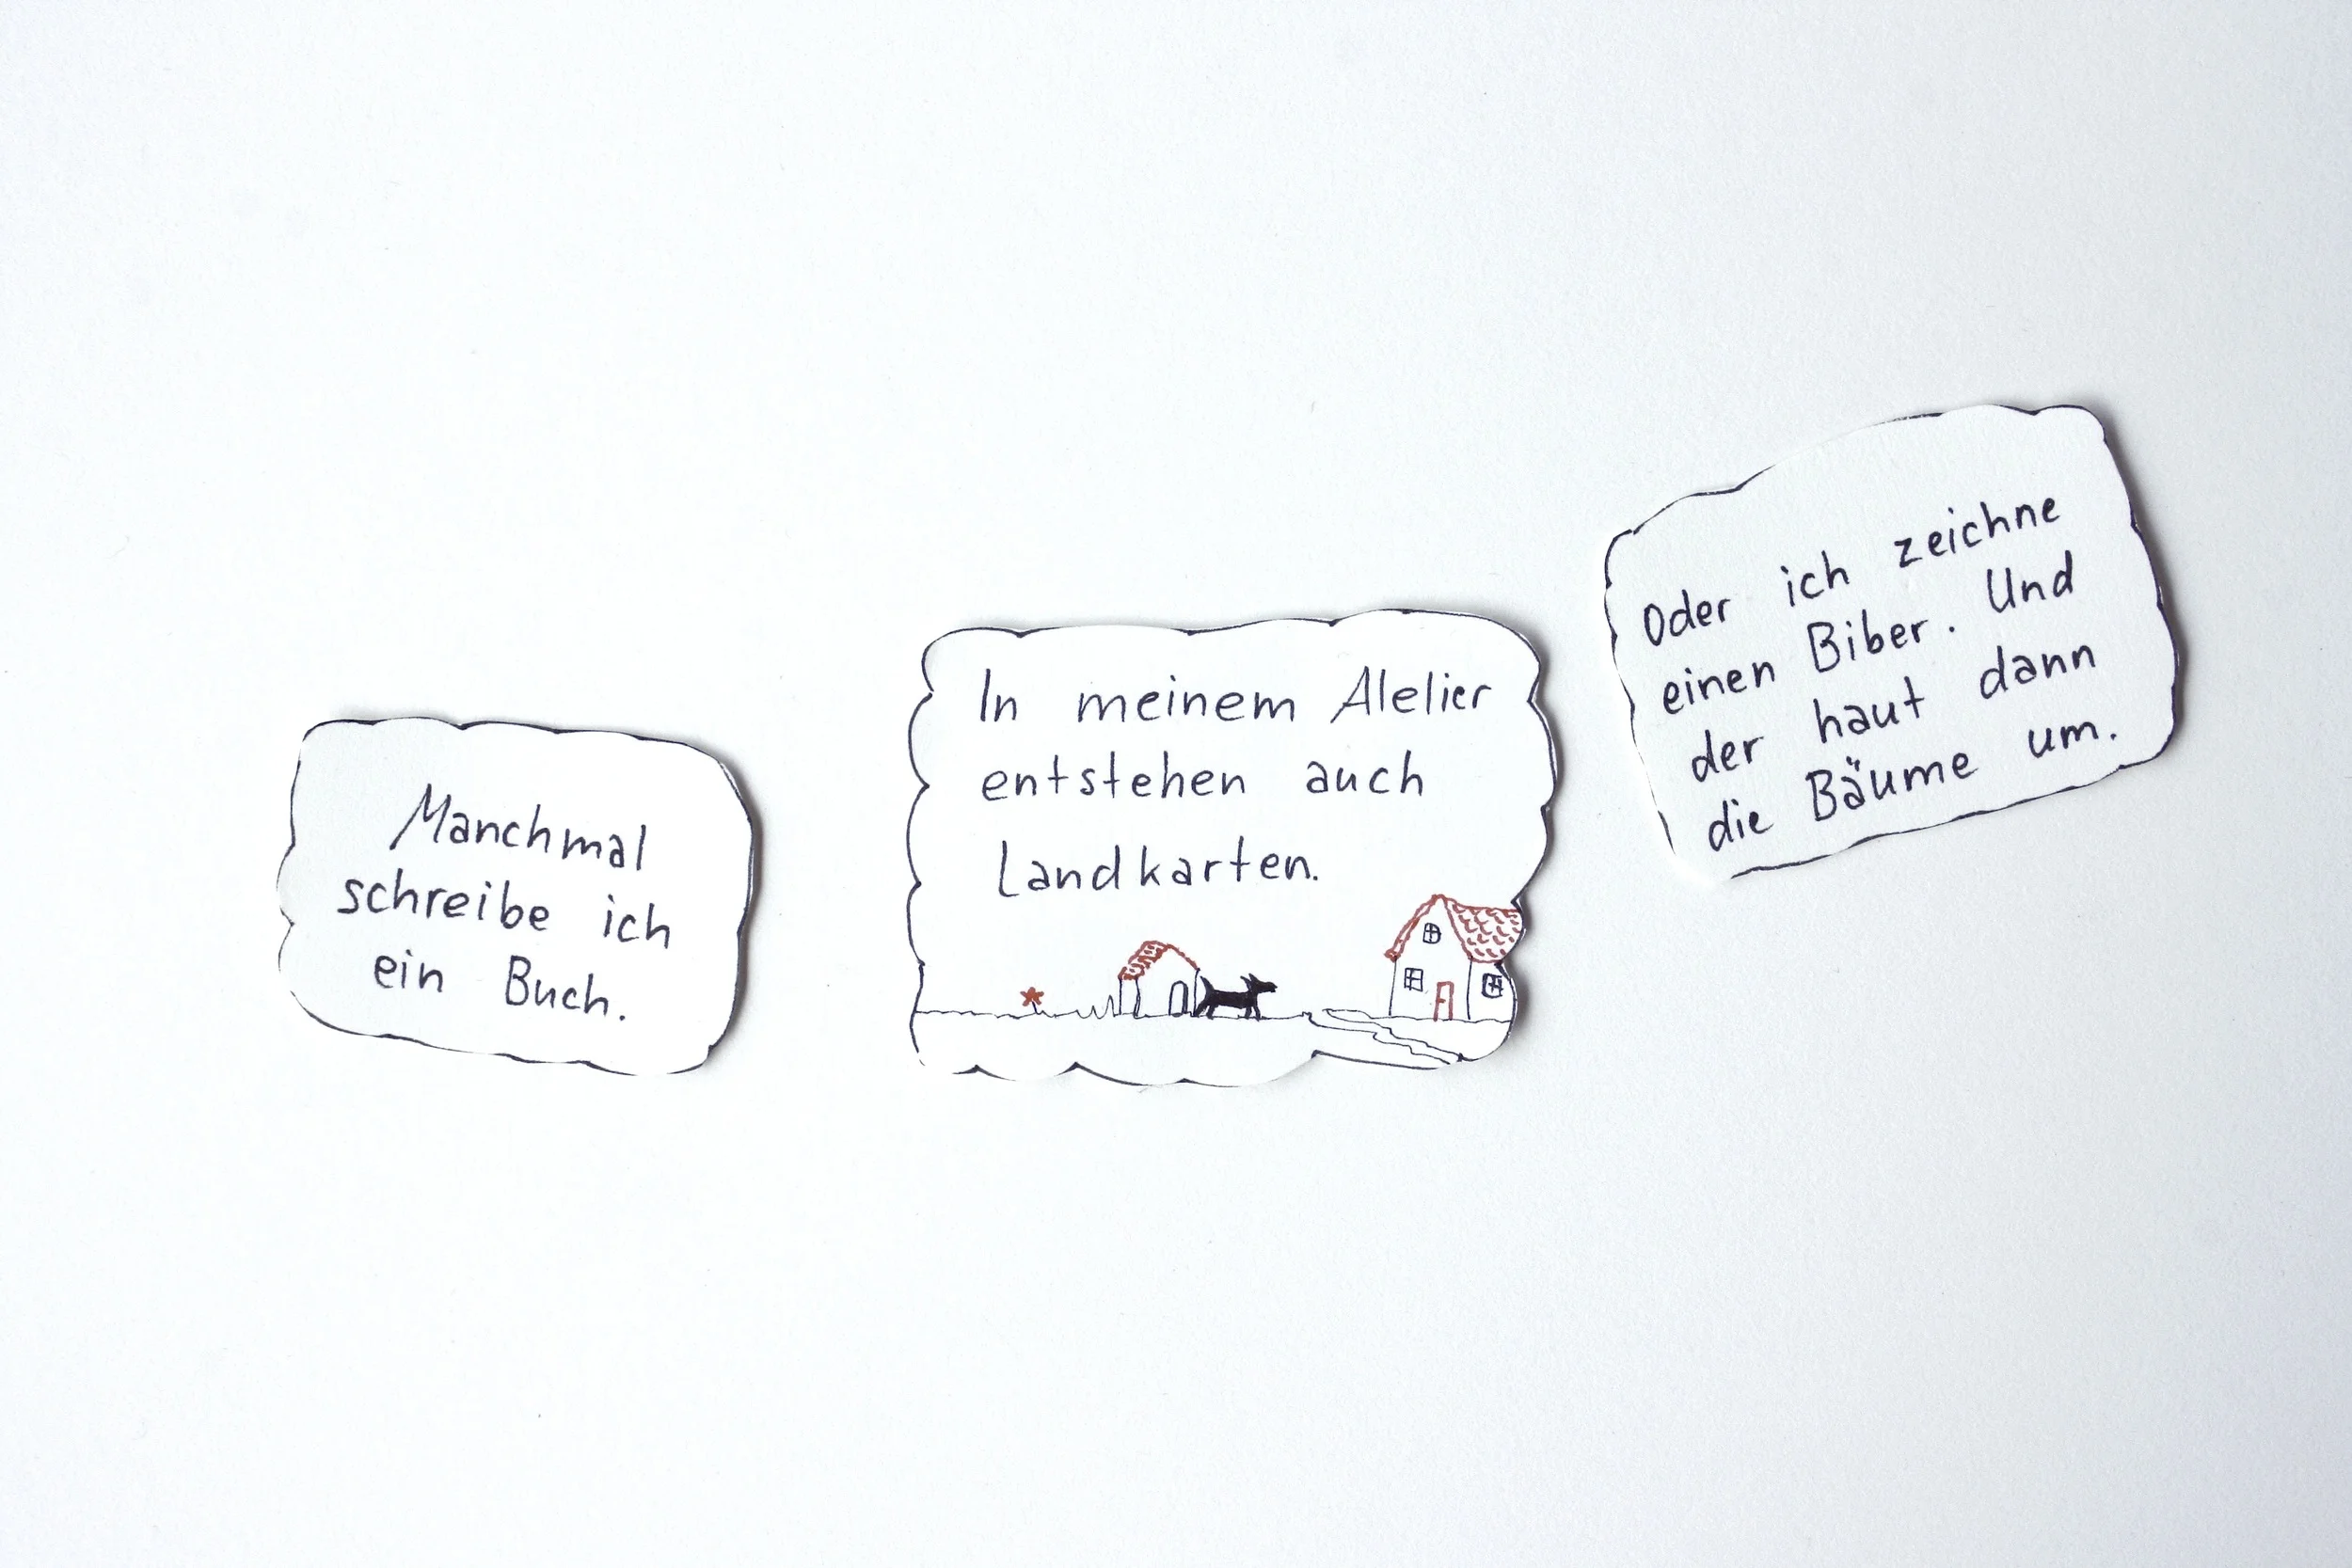 Manchmal
schreibe ich
ein Buch.
In meinem Atelier
entstehen auch
Landkarten.
Oder ich zeichne
einen Biber. Und
der haut dann
die Bäume um.